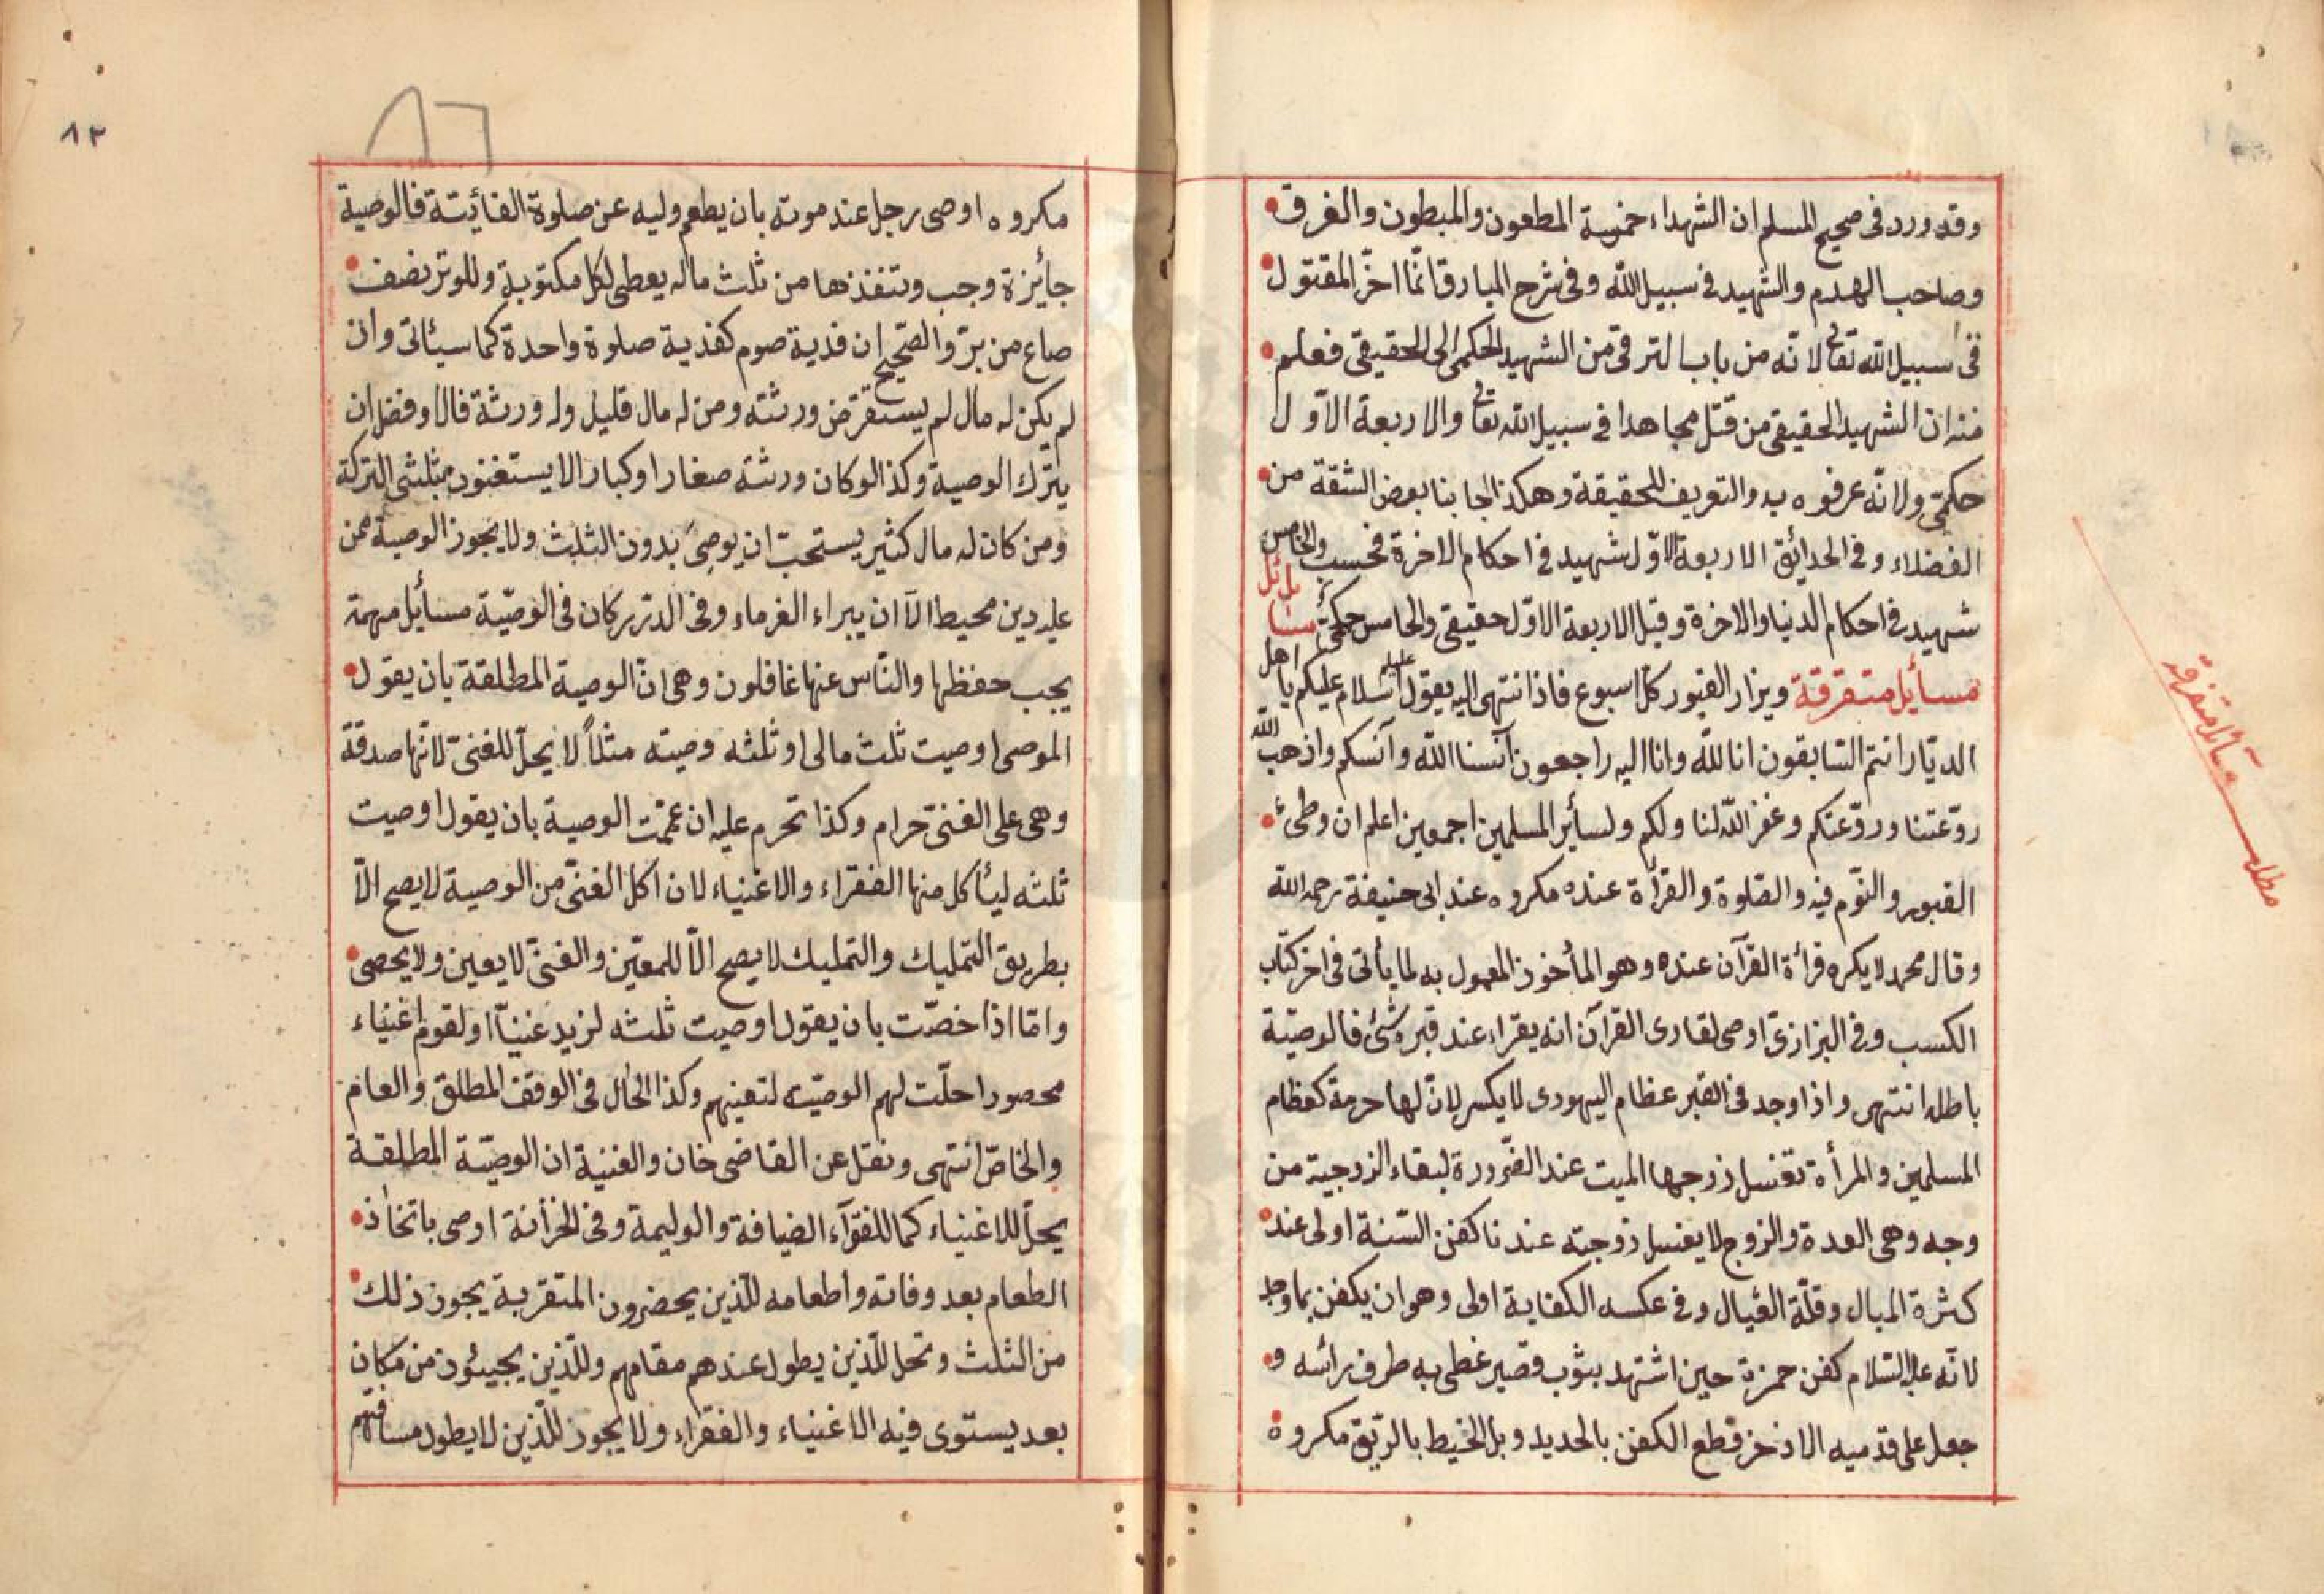 وقد ورد فى صحيح المسلم ان الشهداء خمسة المطعون والمبطون والغرق
وصاحب الهدم والشهيد فى سبيل الله وفى شرح المبارق انّما اخّر المقتول
فى سبيل الله تعالى لانّه من باب الترقى من الشهيد الحكمى الى الحقيقى فعلم
منه ان الشهيد الحقيقى من قتل مجاهدا فى سبيل الله تعالى والاربعة الاوّل
حكمىّ ولانّه عرفوه به والتعريف للحقيقة وهكذا اجابنا بعض الثقة من
الفضلاء وفى الحدائق الاربعة الاوّل شهيد فى احكام الاخرة فحسب والخامس
شهيد فى احكام الدنيا والاخرة وقيل الاربعة الاوّل حقيقى والخامس حكمىّ مسائل
مسائل متفرقة ويزار القبور كل اسبوع فاذا انتهى اليه يقول السلام عليكم يا اهل
الديّار انتم السّابقون انا للّه وانا اليه راجعون آنسنا اللّه وآنسكم واذهب الله
روّعتنا وروّعتكم وغفر اللّه لنا ولكم ولسائر المسلمين اجمعين اعلم ان وطىٔ
القبور والنّوم فيه والصّلوة والقرأة عنده مكروه عند ابى حنيفة رحمه الله
وقال محمد لا يكره قرأة القرآن عنده وهو المأخوذ المعمول به لما يأتى فى اخر كتاب
الكسب وفى البزازىّ اوصى لقارى القرآن انه يقراء عند قبره شئ فالوصيّة
باطله انتهى واذا وجد فى القبر عظام اليهودى لا يكسر لانّ لها حرمة كعظام
المسلمين والمرأة تغسل زوجها الميت عند الضّرورة لبقاء الزوجية من
وجه وهى العدة والزوج لا يغسل زوجته عندنا كفن السّنة اولى عند
كثرة المال وقلّة العيال وفى عكسه الكفاية اولى وهو ان يكفن بما وجد
لانّه عليه السّلام كفن حمزة حين اشتهد بثوب قصير غطى به طرف رائسه و
جعل على قدميه الاذخر قطع الكفن بالحديد وبل الخيط بالرّيق مكروه
مطلب مسائل متفرقه
٨٢
مكروه اوصى رجل عند موته بان يطعم وليه عن صلوة الفائتة فالوصية
جائزة وجب وتنفذها من ثلث ماله يعطى لكل مكتوبة وللوتر نصف
صاع من برّ والصّحيح ان فدية صوم كفدية صلوة واحدة كما سيأتى وان
لم يكن له مال لم يستقرض ورثته ومن له مال قليل وله ورثة فالاوفضل ان
يترك الوصية وكذا لو كان ورثته صغارا او كبارا لا يستغنون بثلثى التركة
ومن كان له مال كثير يستحبّ ان يوصى بدون الثلث ولا يجوز الوصية ممن
عليه دين محيط الّا ان يبراء الغرماء وفى الدّرر كان فى الوصيّة مسائل مهمة
يجب حفظها والنّاس عنها غافلون وهى انّ الوصية المطلقة بان يقول
الموصى اوصيت ثلث مالى او ثلثه وصيته مثلاً لا يحلّ للغنىّ لانّها صدقة
وهى على الغنىّ حرام وكذا تحرم عليه ان عمّمت الوصية بان يقول اوصيت
ثلثه ليأكل منها الفقراء والاغنياء لان اكل الغنىّ من الوصية لا يصح الّا
بطريق التمليك والتمليك لا يصح الّا للمعيّن والغنىّ لا يعين ولا يحصى
وامّا اذا خصّت بان يقول اوصيت ثلثه لزيد غنيّا او لقوم اغنياء
محصور احلّت لهم الوصيّة لتعينهم وكذا الحال فى الوقف المطلق والعام
والخاصّ انتهى ونقل عن القاضى خان والغنية ان الوصيّة المطلقة
يحلّ للاغنياء كما للفقرآء الضيافة والوليمة وفى الخزانة اوصى باتخاذ
الطعام بعد وفاته واطعامه للّذين يحضرون المتقربة يجوز ذلك
من الثلث وتحل للّذين يطول عندهم مقامهم وللّذين يجيئون من مكان
بعد يستوى فيه الاغنياء والفقراء ولا يجوز للّذين لا يطول مسافتهم